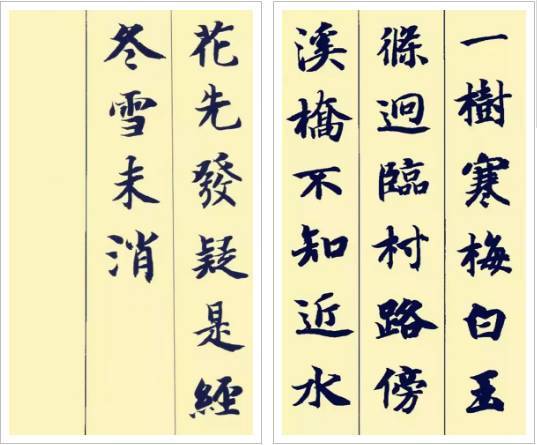 一樹寒梅白玉
條迥臨村路傍
溪橋不知近水
花先發疑是經
冬雪未消